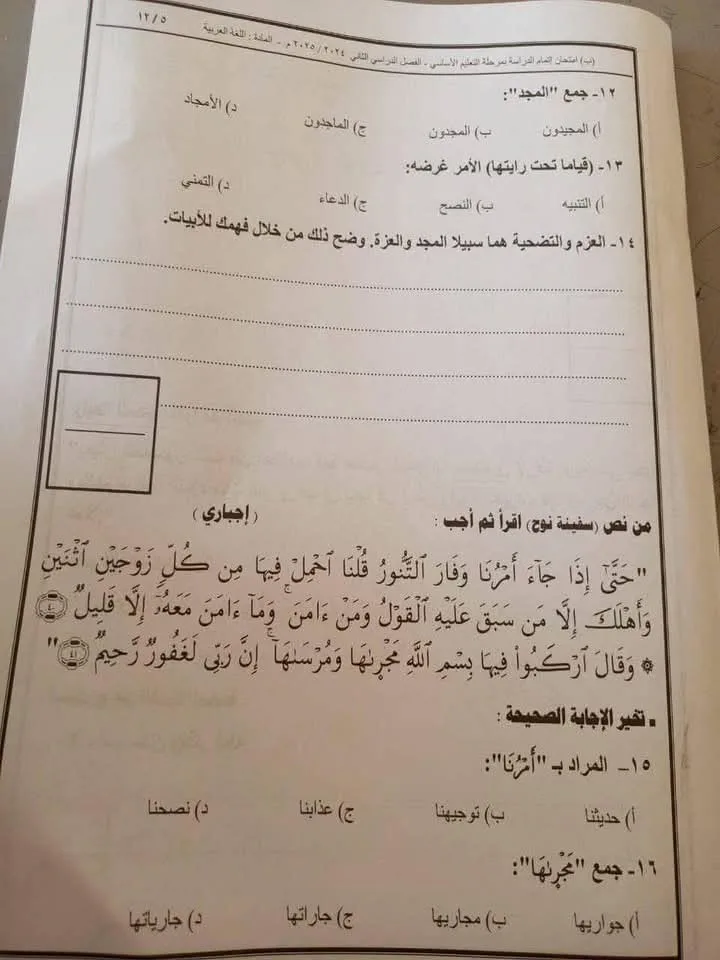 (ب) امتحان إتمام الدراسة بمرحلة التعليم الأساسي - الفصل الدراسي الثاني ٢٠٢٤ / ٢٠٢٥ م. - المادة : اللغة العربية ١٢/٥
١٢- جمع "المجد":
أ) المجيدون ب) المجدون ج) الماجدون د) الأمجاد
١٣- (قياما تحت رايتها) الأمر غرضه:
أ) التنبيه ب) النصح ج) الدعاء د) التمني
١٤- العزم والتضحية هما سبيلا المجد والعزة. وضح ذلك من خلال فهمك للأبيات.
من نص (سفينة نوح) اقرأ ثم أجب : (إجباري )
"حَتَّىٰٓ إِذَا جَآءَ أَمْرُنَا وَفَارَ ٱلتَّنُّورُ قُلْنَا ٱحْمِلْ فِيهَا مِن كُلٍّ زَوْجَيْنِ ٱثْنَيْنِ
وَأَهْلَكَ إِلَّا مَن سَبَقَ عَلَيْهِ ٱلْقَوْلُ وَمَنْ ءَامَنَ ۚ وَمَآ ءَامَنَ مَعَهُۥٓ إِلَّا قَلِيلٌ ٤٠
۞ وَقَالَ ٱرْكَبُوا۟ فِيهَا بِسْمِ ٱللَّهِ مَجْر۪ىٰهَا وَمُرْسَىٰهَآ ۚ إِنَّ رَبِّى لَغَفُورٌ رَّحِيمٌ ٤١"
▪ تخير الإجابة الصحيحة :
١٥- المراد بـ "أَمْرُنَا":
أ) حديثنا ب) توجيهنا ج) عذابنا د) نصحنا
١٦- جمع "مَجْر۪ىٰهَا":
أ) جواريها ب) مجاريها ج) جاراتها د) جارياتها